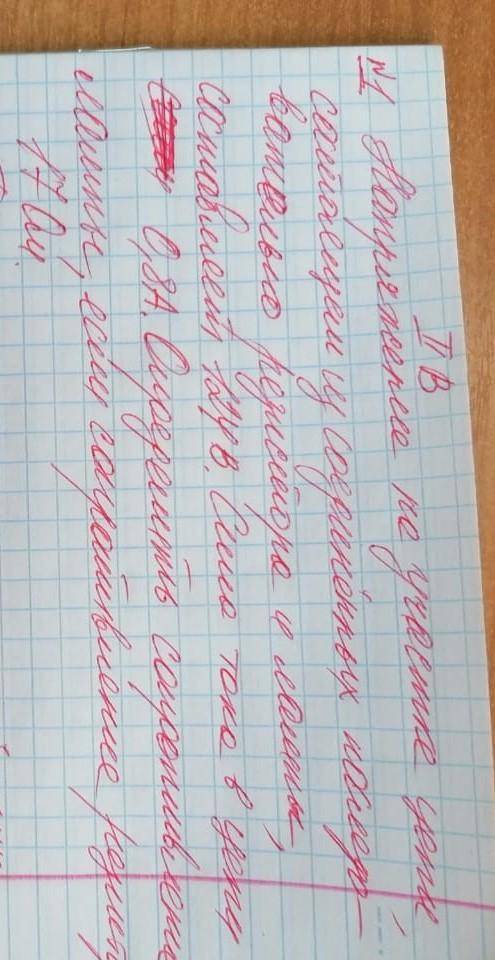 II В
№1 Напряжение на участке цепи,
состоящем из соединённых последо-
вательно резистора и лампы,
составляет 24 В. Сила тока в цепи
0,8А. Определить сопротивление
лампы, если сопротивление резист
17 Ом.